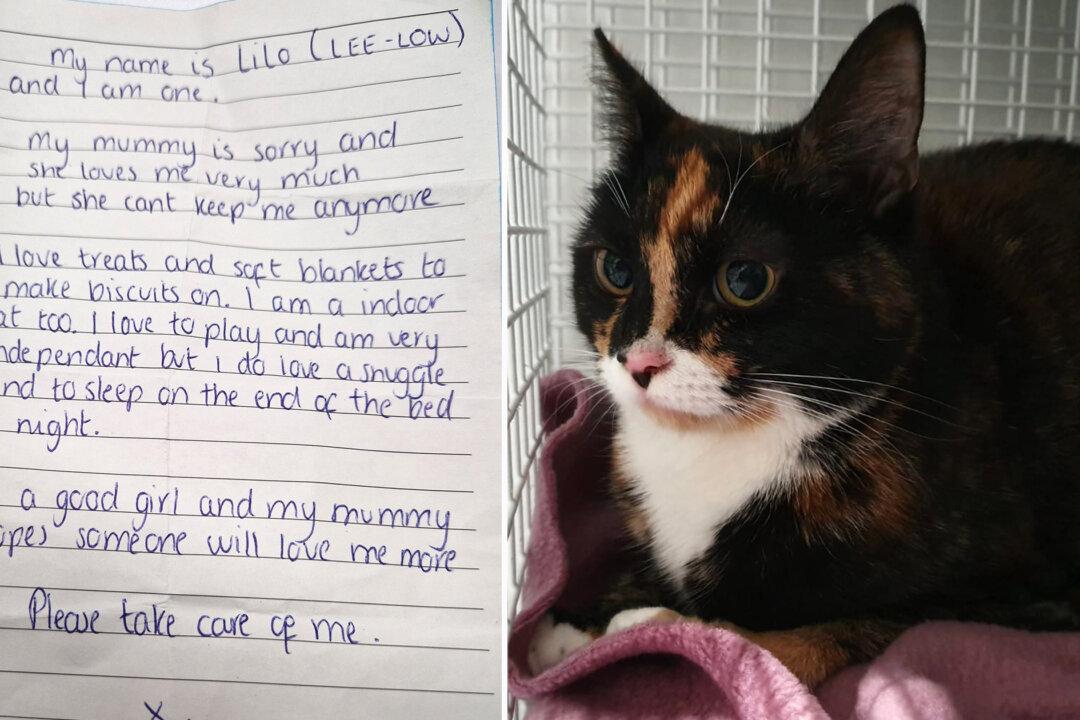 My name is Lilo (LEE-LOW)
and I am one.
My mummy is sorry and
she loves me very much
but she cant keep me anymore
I love treats and soft blankets to
make biscuits on. I am a indoor
at too. I love to play and am very
ndependant but i do love a snuggle
nd to sleep on the end of the bed
night.
a good girl and my mummy
opes someone will love me more
Please take care of me.
X